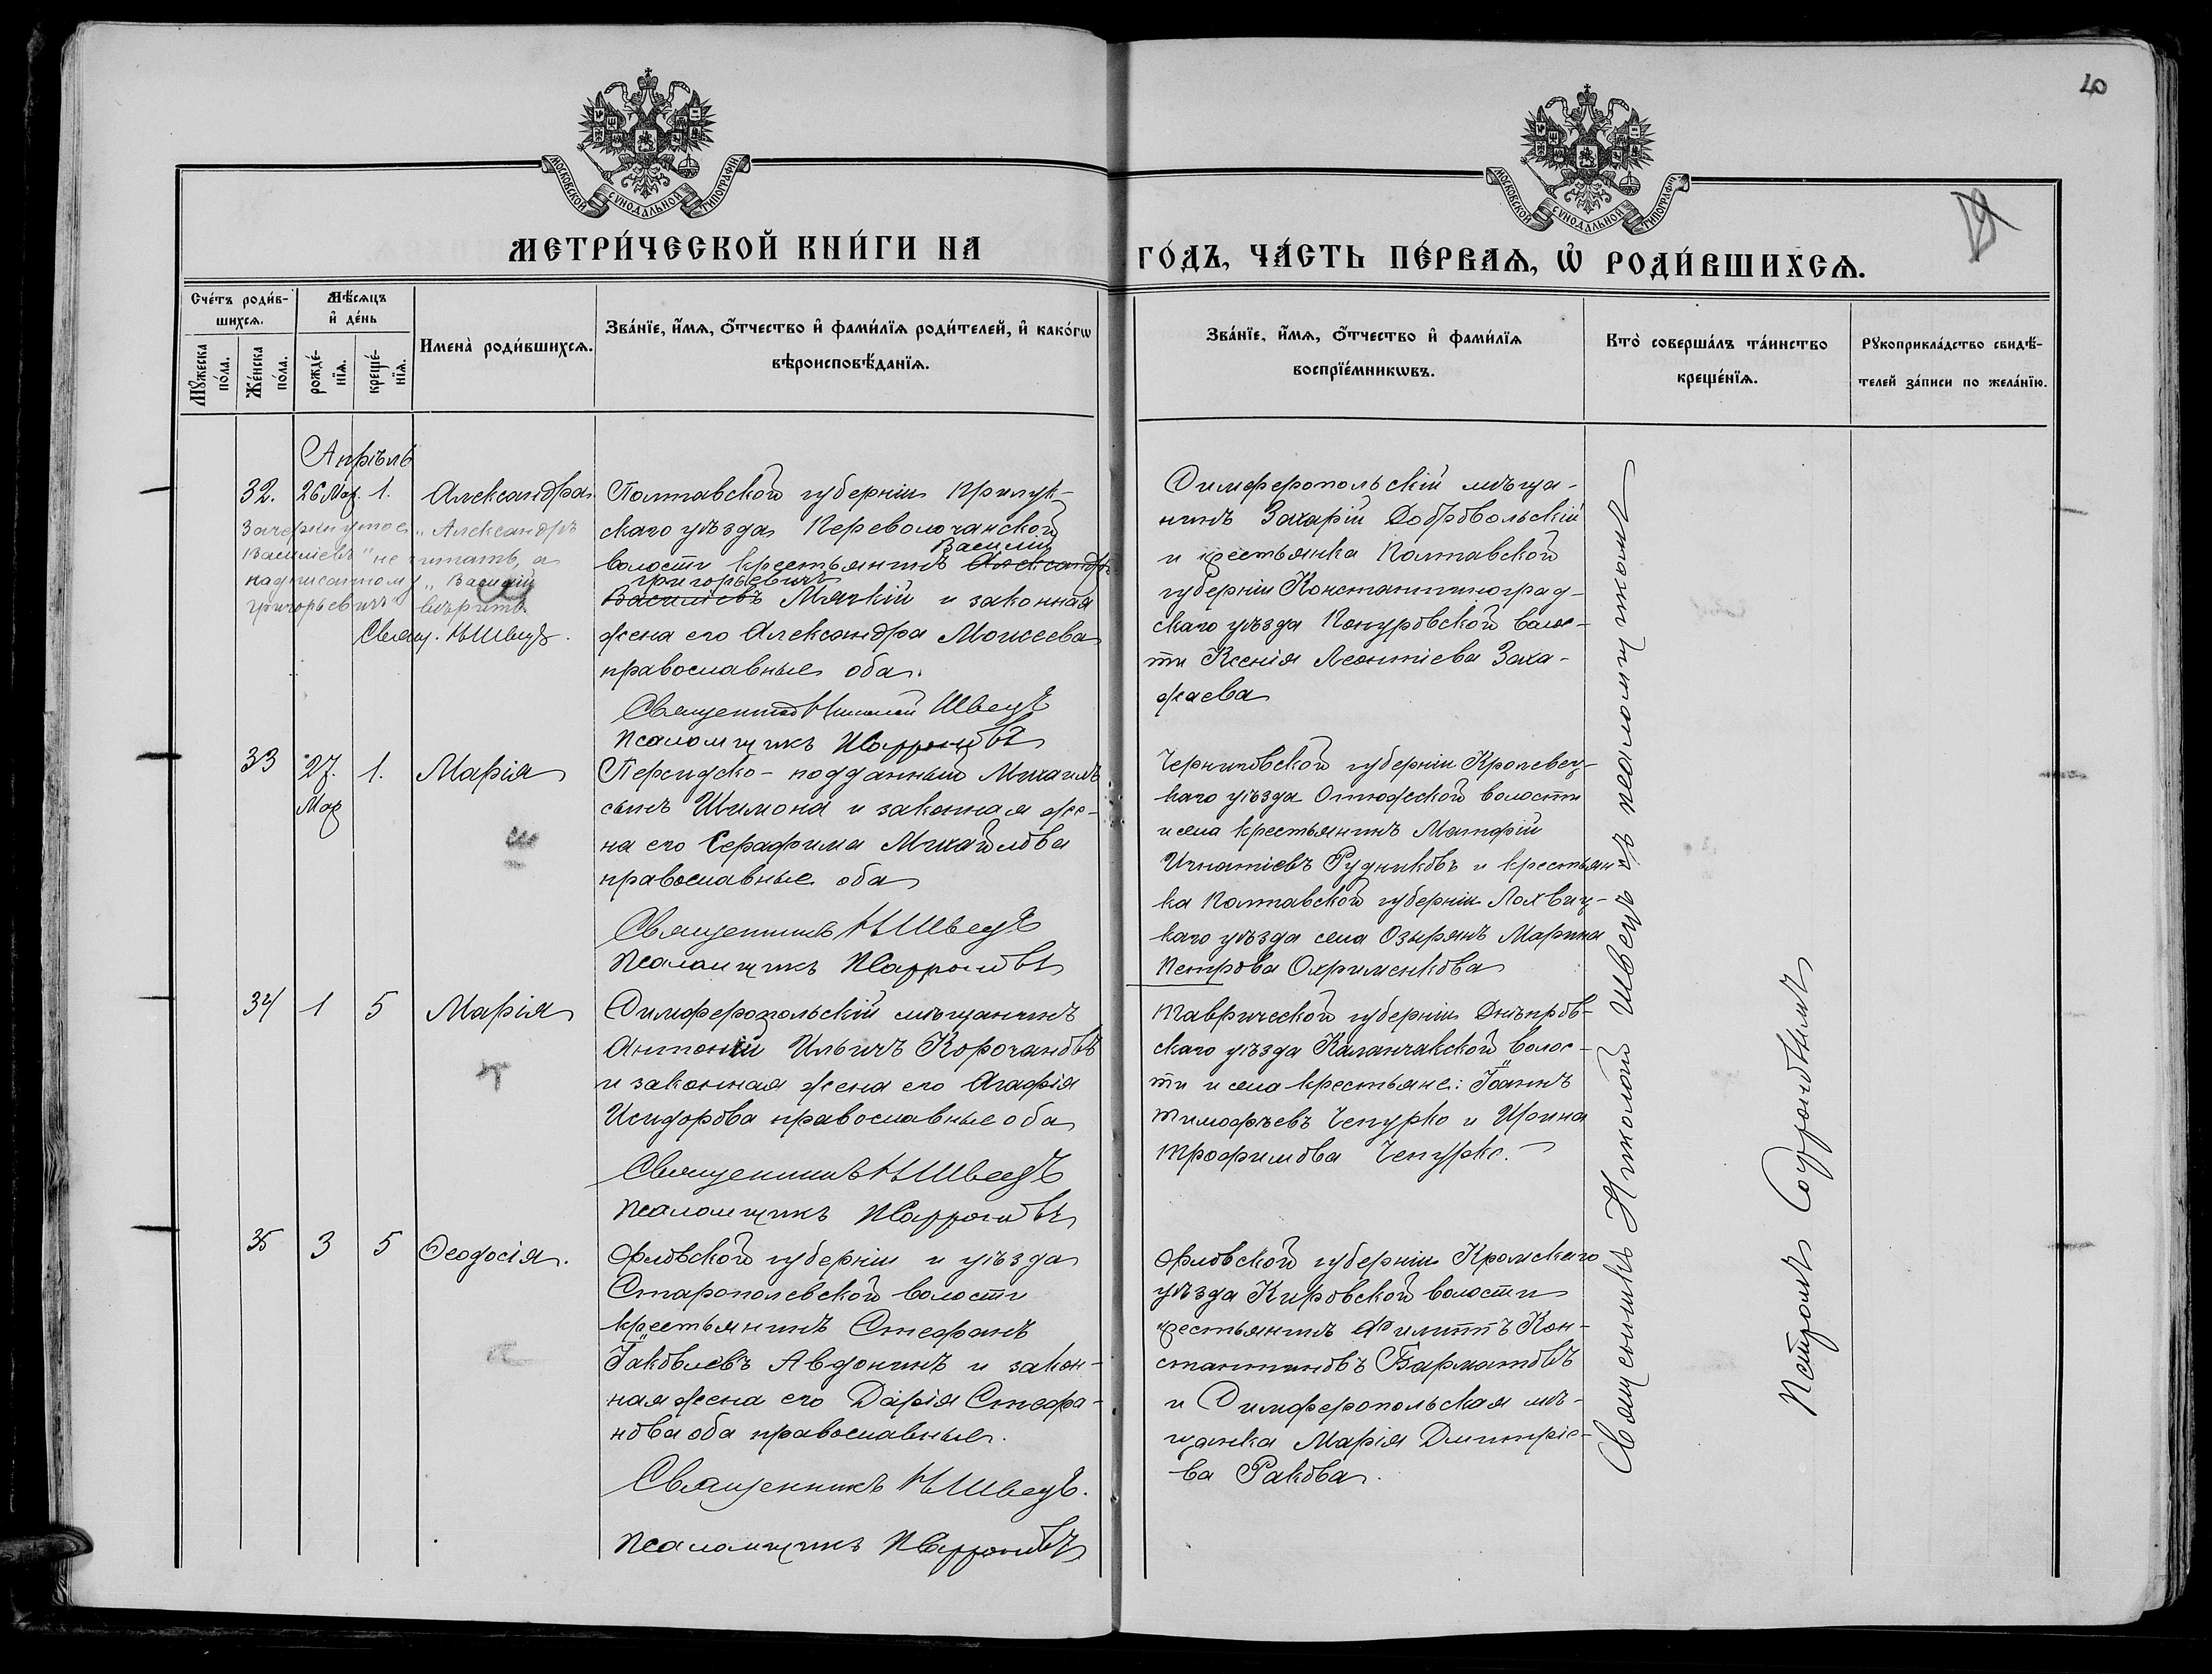 40
МОСКОВСКОЙ СУНОДАЛЬНОЙ ТИПОГРАФІИ
МОСКОВСКОЙ СУНОДАЛЬНОЙ ТИПОГРАФІИ
МЕТРИ́ЧЕСКОЙ КНИ́ГИ НА
ГО́ДЪ, ЧА́СТЬ ПЕ́РВАѦ, Ѡ҆ РОДИ́ВШИХСѦ.
Сче́тъ роди́в-
шихсѧ.
Мꙋ́жеска по́ла.
Же́нска по́ла.
Мѣ́сѧцъ
и҆ де́нь
рожде́-
нїѧ.
креще́-
нїѧ.
Имена̀ роди́вшихсѧ.
Зва́нїе, и҆́мѧ, ѻ҆́тчество и҆ фами́лїѧ роди́телей, и҆ како́гѡ
вѣроисповѣ́данїѧ.
Зва́нїе, и҆́мѧ, ѻ҆́тчество и҆ фами́лїѧ
воспрїе́мникѡвъ.
Кто̀ соверша́лъ та́инство
креще́нїѧ.
Рꙋкоприкла́дство свидѣ́-
телей за́писи по жела́нїю.
Апрѣль
32. 26 Мар. 1. Александра
Зачеркнутое „Александръ
Васильевъ" не читать, а
надписанному „Василій
Григорьевичъ" вѣрить.
Свящ. Н Швецъ.
Полтавской губерніи Прилук-
скаго уѣзда Переволочанской
Василій
волости крестьянинъ Александръ
Григорьевичъ
Васильевъ Мягкій и законная
жена его Александра Моисеева
православные оба.
Священникъ Николай Швецъ
Псаломщикъ П Софроновъ
Симферопольскій мѣща-
нинъ Захарій Добровольскій
и крестьянка Полтавской
губерніи Константиноград-
скаго уѣзда волос-
ти Ксенія Леонтіева Заха-
ржаева
33 27. Мар 1. Марія
Персидско-подданный Михаилъ
сынъ Шимона и законная же-
на его Серафима Михайлова
православные оба
Священникъ Н Швецъ
Псаломщикъ П Софроновъ
Черниговской губерніи Кролевец-
каго уѣзда волости
и села крестьянинъ Матфій
Игнатіевъ Рудниковъ и крестьян-
ка Полтавской губерніи Лохвиц-
каго уѣзда села Озырянъ Марина
Петрова Охрименкова
34 1 5 Марія
Симферопольскій мѣщанинъ
Антоній Ильичъ Корочановъ
и законная жена его Агафія
Исидорова православные оба
Священникъ Н Швецъ
Псаломщикъ П Софроновъ
Таврической губерніи Днѣпров-
скаго уѣзда Каланчакской волос-
ти и села крестьяне: Іоаннъ
Тимофѣевъ Чепурко и Ирина
Трофимова Чепурко.
35 3 5 Ѳеодосія.
Орловской губерніи и уѣзда
Старопольевской волости
крестьянинъ Стефанъ
Іаковлевъ Авдонинъ и закон-
ная жена его Дарія Стефа-
нова оба православные.
Священникъ Н Швецъ.
Псаломщикъ П Софроновъ
Орловской губерніи Кромскаго
уѣзда Кировской волости
крестьянинъ Филиппъ Кон-
стантиновъ Барматовъ
и Симферопольская мѣ-
щанка Марія Димитріе-
ва Ракова.
Священникъ Николай Швецъ съ псаломщикомъ
Петромъ Софроновымъ